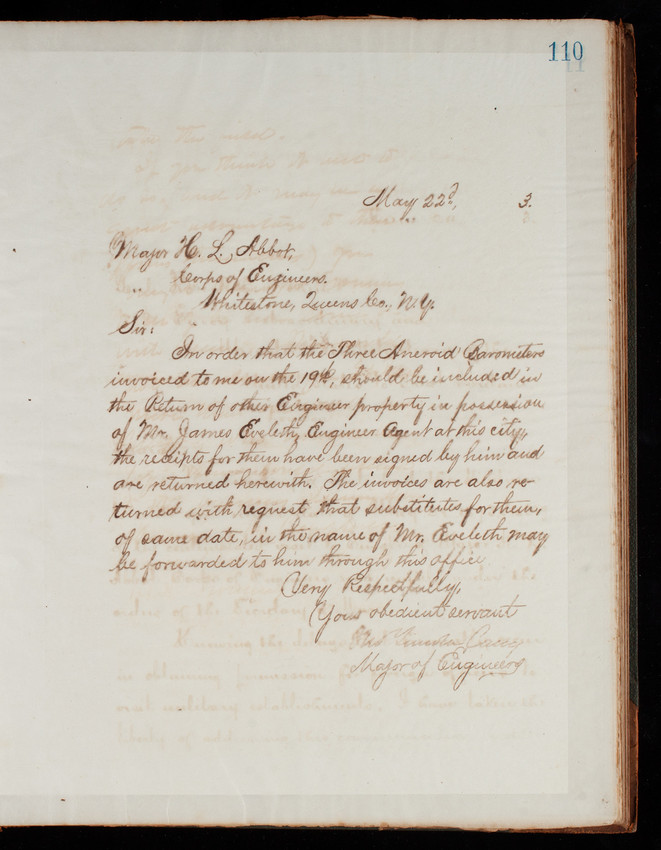 110
May 22d, 3.
Major H. L. Abbot,
Corps of Engineers.
Whitestone, Queens Co., N.Y.
Sir:
In order that the Three Aneroid Barometers
invoiced to me on the 19th, should be included in
the Return of other Engineer property in possession
of Mr. James Eveleth, Engineer Agent at this city,
the receipts for them have been signed by him and
are returned herewith. The invoices are also re-
turned with request that substitutes for them,
of same date, in the name of Mr. Eveleth may
be forwarded to him through this office
Very Respectfully,
Your obedient servant
Thos. Lincoln Casey
Major of Engineers